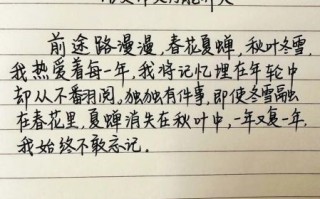 前途路漫漫，春花夏蝉，秋叶冬雪，
我热爱着每一年，我将记忆埋在年轮中
却从不番羽阅。独独有件事，即使冬雪融
在春花里，夏蝉消失在秋叶中，一年又复一年，
我始终不敢忘记。